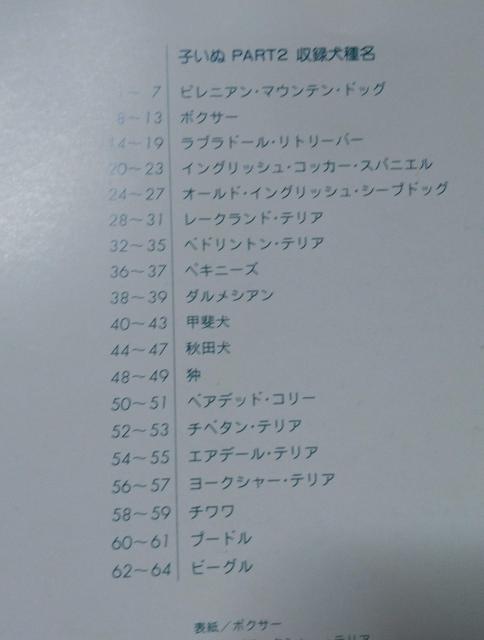 子いぬ PART2 収録犬種名
1～ 7 ピレニアン・マウンテン・ドッグ
8～13 ボクサー
14～19 ラブラドール・リトリーバー
20～23 イングリッシュ・コッカー・スパニエル
24～27 オールド・イングリッシュ・シープドッグ
28～31 レークランド・テリア
32～35 ベドリントン・テリア
36～37 ペキニーズ
38～39 ダルメシアン
40～43 甲斐犬
44～47 秋田犬
48～49 狆
50～51 ベアデッド・コリー
52～53 チベタン・テリア
54～55 エアデール・テリア
56～57 ヨークシャー・テリア
58～59 チワワ
60～61 プードル
62～64 ビーグル
表紙／ボクサー